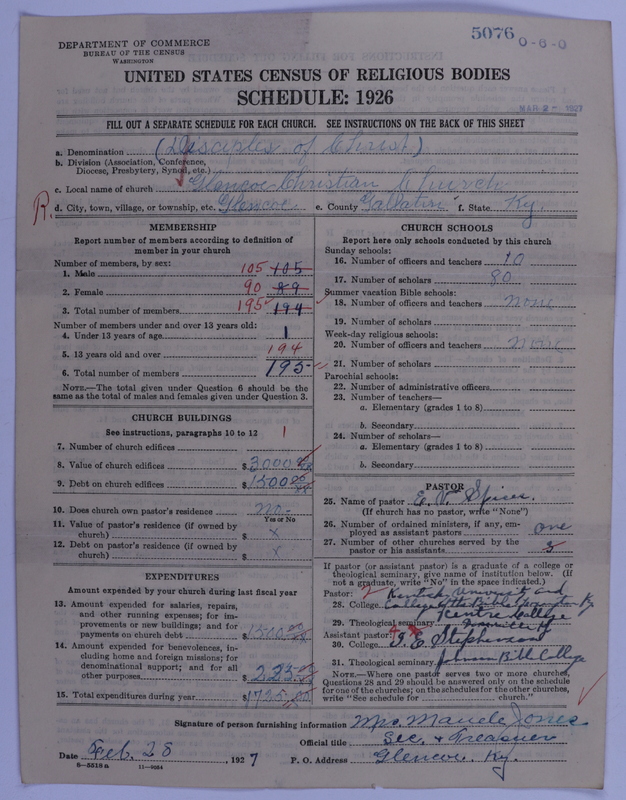 5076 0-6-0
DEPARTMENT OF COMMERCE
BUREAU OF THE CENSUS
WASHINGTON
UNITED STATES CENSUS OF RELIGIOUS BODIES
SCHEDULE: 1926
MAR 2 1927
FILL OUT A SEPARATE SCHEDULE FOR EACH CHURCH. SEE INSTRUCTIONS ON THE BACK OF THIS SHEET
a. Denomination (Disciples of Christ)
b. Division (Association, Conference, Diocese, Presbytery, Synod, etc.)
c. Local name of church Glencoe Christian Church
R. d. City, town, village, or township, etc. Glencoe e. County Gallatin f. State Ky.
MEMBERSHIP
Report number of members according to definition of
member in your church
Number of members, by sex:
1. Male 105 105
2. Female 90 89
3. Total number of members 195 194
Number of members under and over 13 years old:
4. Under 13 years of age 1
5. 13 years old and over 194
6. Total number of members 195
NOTE.—The total given under Question 6 should be the
same as the total of males and females given under Question 3.
CHURCH BUILDINGS
See instructions, paragraphs 10 to 12
7. Number of church edifices 1
8. Value of church edifices $ 3000
9. Debt on church edifices $ 1500
10. Does church own pastor's residence no-
Yes or No
11. Value of pastor's residence (if owned by
church) $ x
12. Debt on pastor's residence (if owned by
church) $ x
EXPENDITURES
Amount expended by your church during last fiscal year
13. Amount expended for salaries, repairs,
and other running expenses; for im-
provements or new buildings; and for
payments on church debt $ 1500
14. Amount expended for benevolences, in-
cluding home and foreign missions; for
denominational support; and for all
other purposes $ 225
15. Total expenditures during year $ 1725
CHURCH SCHOOLS
Report here only schools conducted by this church
Sunday schools:
16. Number of officers and teachers 10
17. Number of scholars 80
Summer vacation Bible schools:
18. Number of officers and teachers none
19. Number of scholars
Week-day religious schools:
20. Number of officers and teachers none
21. Number of scholars
Parochial schools:
22. Number of administrative officers
23. Number of teachers—
a. Elementary (grades 1 to 8)
b. Secondary
24. Number of scholars—
a. Elementary (grades 1 to 8)
b. Secondary
PASTOR
25. Name of pastor E. V. Spicer.
(If church has no pastor, write "None")
26. Number of ordained ministers, if any, em-
ployed as assistant pastors one
27. Number of other churches served by the
pastor or his assistants 3
If pastor (or assistant pastor) is a graduate of a college or
theological seminary, give name of institution below. (If
not a graduate, write "No" in the space indicated.)
Pastor: Kentucky University and
28. College College of the Bible Lexington Ky
Centre College
29. Theological seminary Danville Ky
Assistant pastor:
30. College I. E. Stephenson
31. Theological seminary Johnson Bible College
NOTE.—Where one pastor serves two or more churches,
Questions 28 and 29 should be answered only on the schedule
for one of the churches; on the schedules for the other churches,
write "See schedule for church."
Signature of person furnishing information Mrs. Maude Jones
Official title Sec. + Treasurer
Date Feb. 28, 1927 P. O. Address Glencoe, Ky.
8—5519 a 11—9064